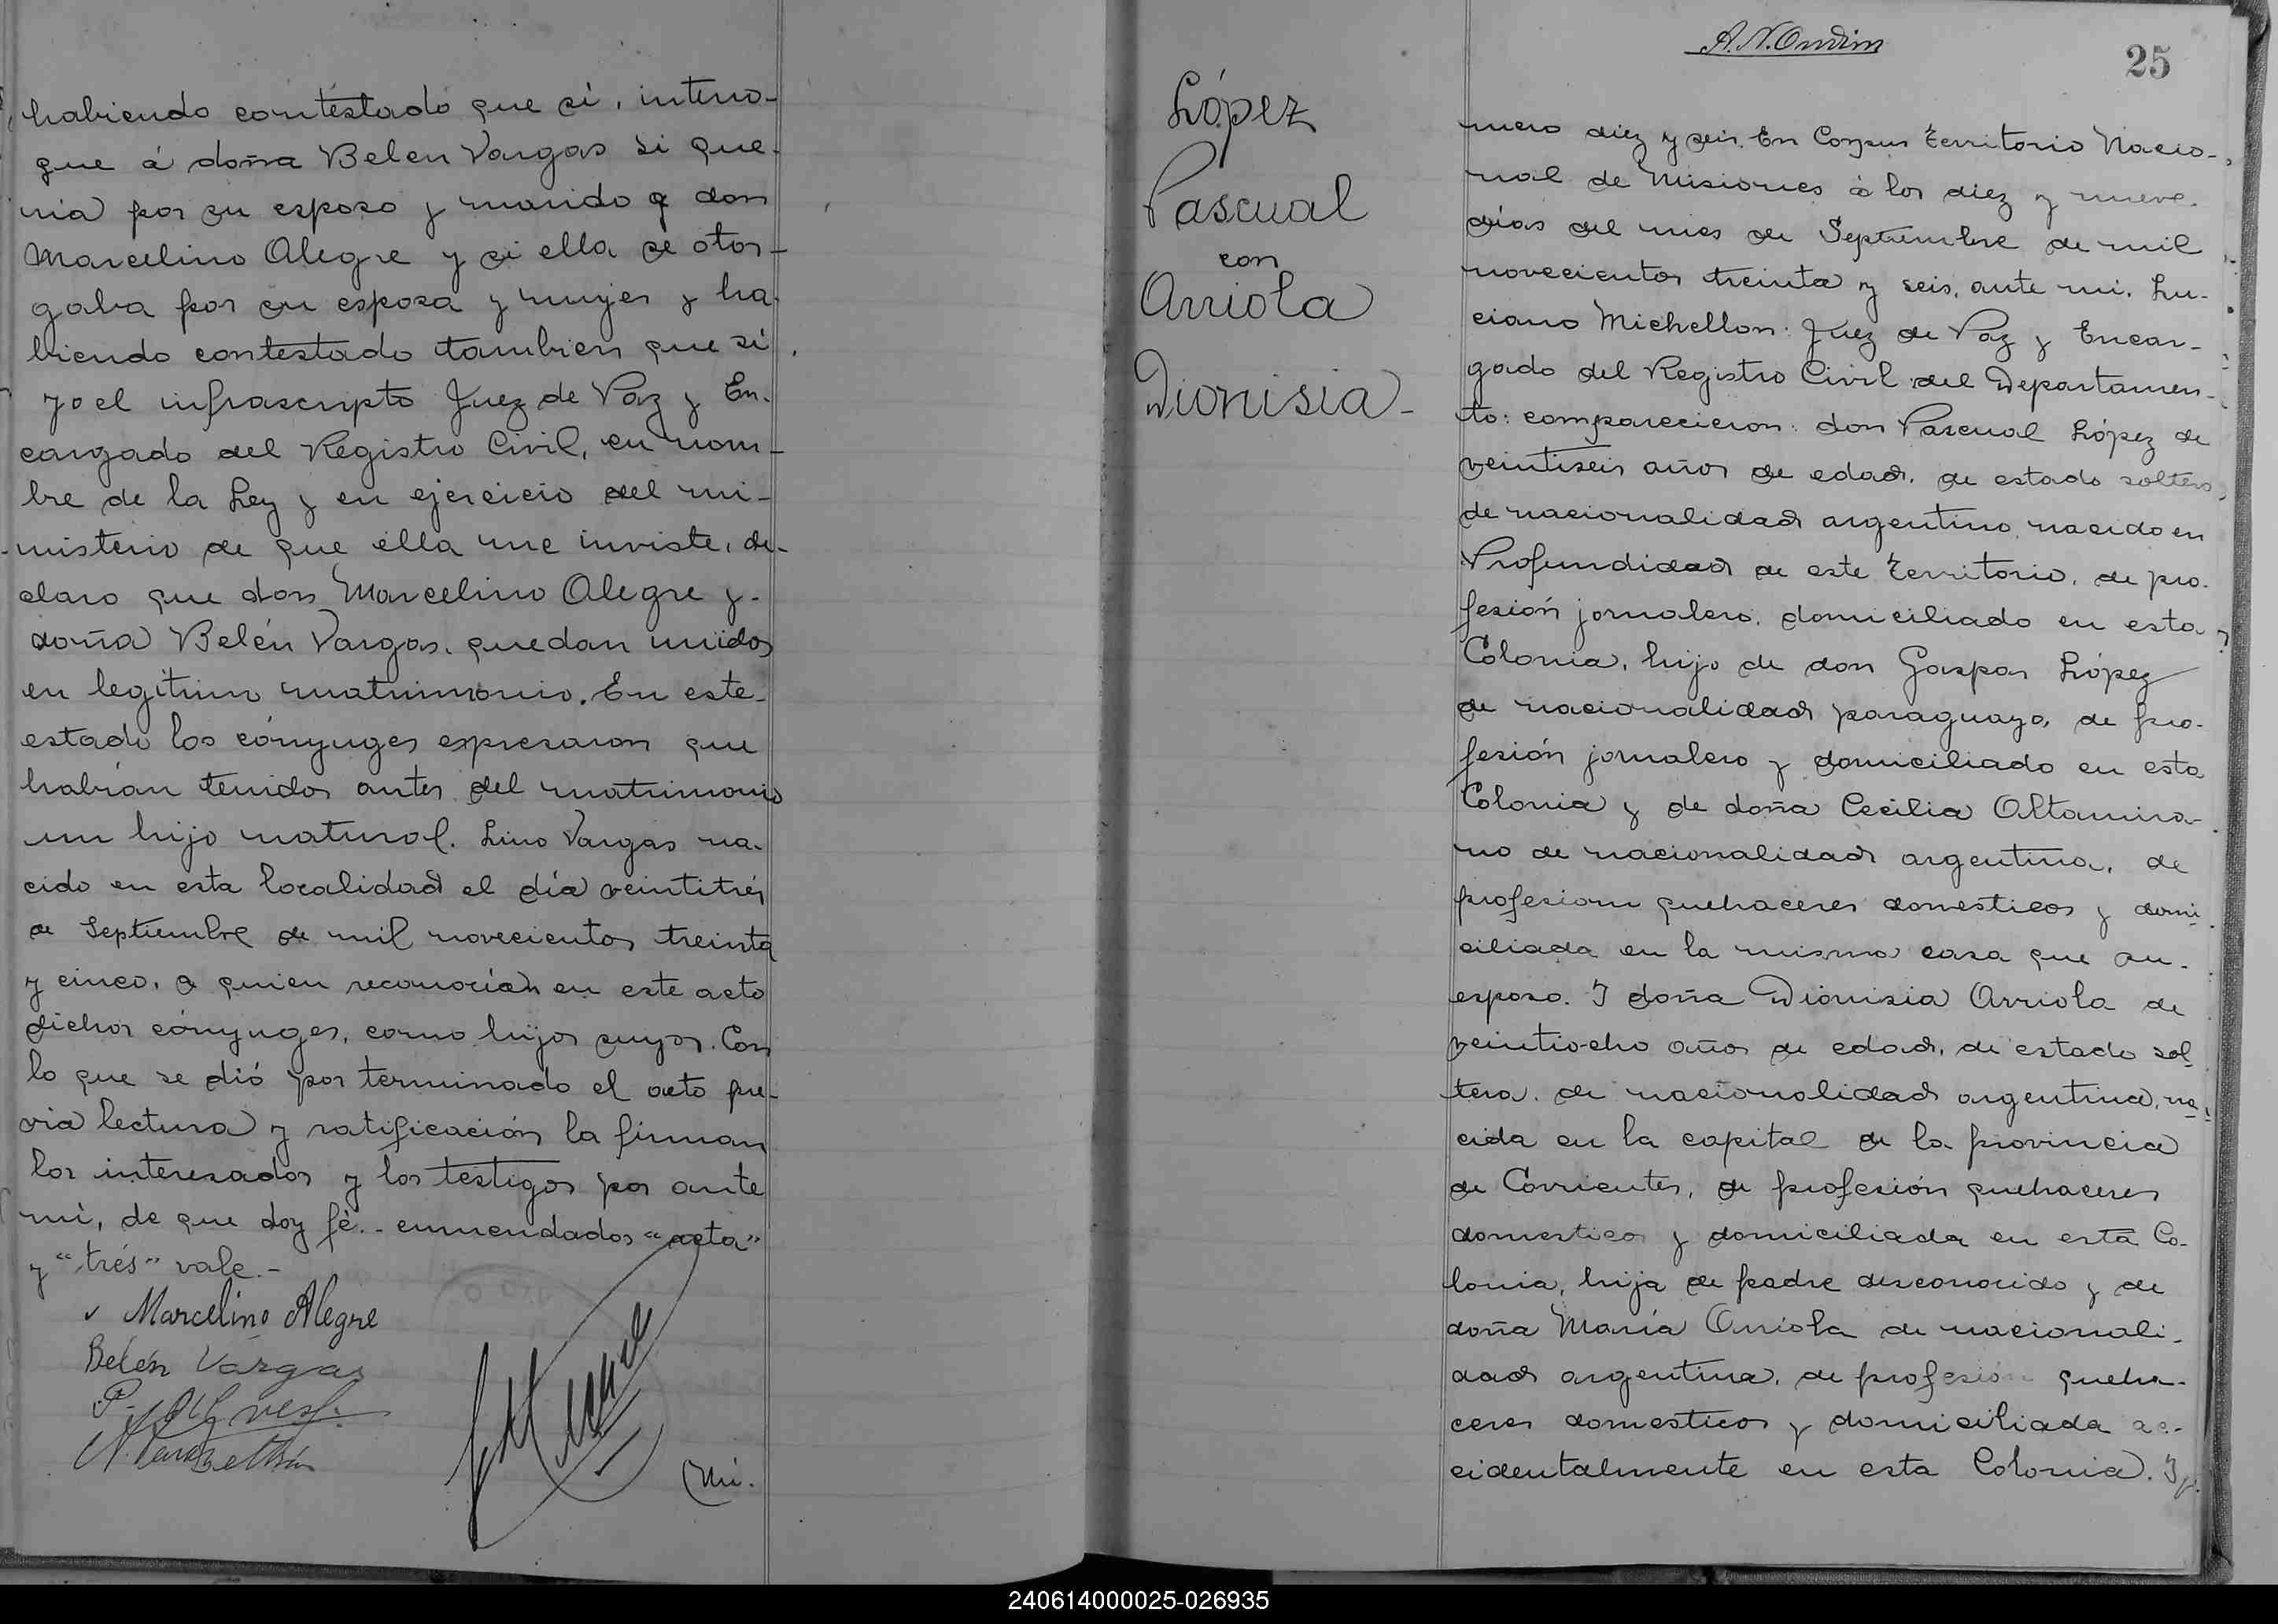 habiendo contestado que sí, interro-
gue á doña Belen Vargas si que-
ria por su esposo y marido a don
Marcelino Alegre y si ella se otor-
gaba por su esposa y mujer y ha-
biendo contestado tambien que si
yo el infrascripto Juez de Paz y En-
cargado del Registro Civil, en nom-
bre de la Ley y en ejercicio del mi-
nisterio de que ella me inviste, de-
claro que don Marcelino Alegre y-
doña Belén Vargas, quedan unidos
en legitimo matrimonio. En este-
estado los cónyuges expresaron que
habian tenidos antes del matrimonio
un hijo natural. Lino Vargas na-
cido en esta localidad el día veintitrés
de Septiembre de mil novecientos treinta
y cinco, a quien reconocian en este acto
dichos cónyuges, como hijos suyos. Con
lo que se dió por terminado el acto pre-
via lectura y ratificación la firman
los interesados y los testigos por ante
mí, de que doy fé.- enmendados "acta"
y "trés" vale.-
Marcelino Alegre
Belén Vargas
(Nú.
A. N.
25
López
Pascual
con
Arriola
Dionisia-
mero diez y seis. En Corpus Territorio Nacio-
nal de Misiones á los diez y nueve-
días del mes de Septiembre de mil
novecientos treinta y seis, ante mi, Lu-
ciano Michellon: Juez de Paz y Encar-
gado del Registro Civil del Departamen-
to: comparecieron: don Pascual López de
veintiseis años de edad, de estado soltero,
de nacionalidad argentino, nacido en
Profundidad de este Territorio, de pro-
fesión jornalero, domiciliado en esta
Colonia, hijo de don Gaspar López
de nacionalidad paraguayo, de pro-
fesión jornalero y domiciliado en esta
Colonia y de doña Cecilia Altamira-
no de nacionalidad argentina, de
profesion quehaceres domesticos y domi-
ciliada en la misma casa que su-
esposo. Y doña Dionisia Arriola de
veintiocho años de edad, de estado sol-
tera, de nacionalidad argentina, na-
cida en la capital de la provincia
de Corrientes, de profesión quehaceres
domesticos y domiciliada en esta Co-
lonia, hija de padre desconocido y de
doña María Arriola de nacionali-
dad argentina, de profesión queha-
ceres domesticos y domiciliada ac-
cidentalmente en esta Colonia. Y
240614000025-026935